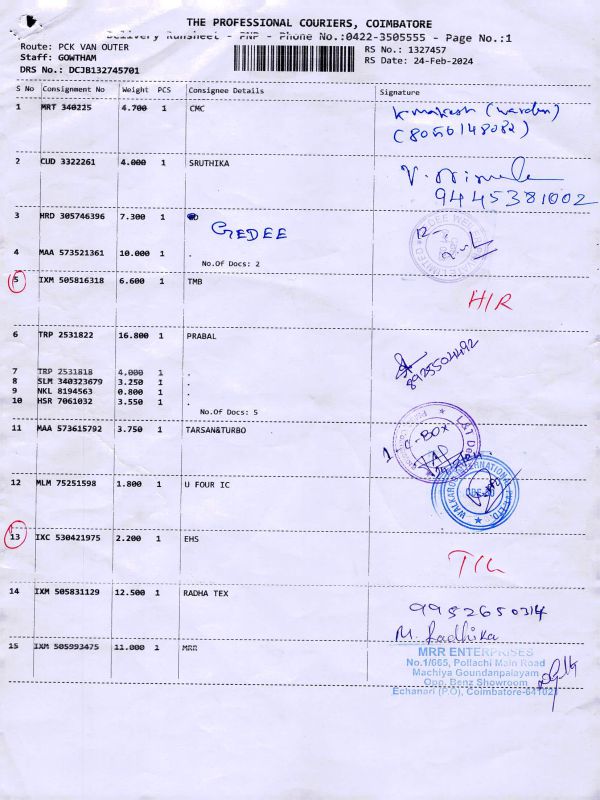 THE PROFESSIONAL COURIERS, COIMBATORE
Delivery Runsheet - PNP - Phone No.:0422-3505555 - Page No.:1
Route: PCK VAN OUTER
RS No.: 1327457
Staff: GOWTHAM
RS Date: 24-Feb-2024
DRS No.: DCJB132745701
S No Consignment No Weight PCS Consignee Details Signature
1 MRT 340225 4.700 1 CMC
(warden)
(8056148082)
2 CUD 3322261 4.000 1 SRUTHIKA
9445381002
3 HRD 305746396 7.300 1 GEDEE
4 MAA 573521361 10.000 1 .
No.Of Docs: 2
5 IXM 505816318 6.600 1 TMB
H/R
6 TRP 2531822 16.800 1 PRABAL
8925504492
7 TRP 2531818 4.000 1 .
8 SLM 340323679 3.250 1 .
9 NKL 8194563 0.800 1 .
10 HSR 7061032 3.550 1 .
No.Of Docs: 5
11 MAA 573615792 3.750 1 TARSAN&TURBO
12 MLM 75251598 1.800 1 U FOUR IC
WALKAROO INTERNATIONAL
13 IXC 530421975 2.200 1 EHS
14 IXM 505831129 12.500 1 RADHA TEX
9952650314
M. Radhika
15 IXM 505993475 11.000 1 MRR
MRR ENTERPRISES
No.1/665, Pollachi Main Road
Machiya Goundanpalayam
Opp. Benz Showroom
Echanari (P.O), Coimbatore-641021